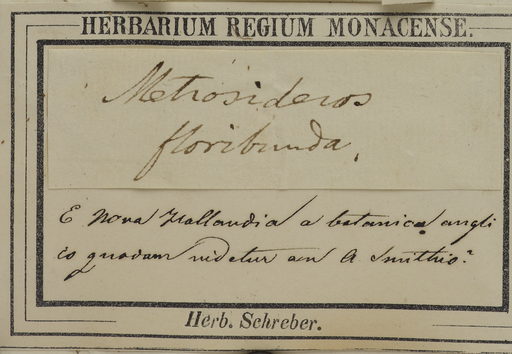 HERBARIUM REGIUM MONACENSE.
Metrosideros
floribunda,
E Nova Hollandia a botanico angli
co quodam videtur an A Smithio?
Herb. Schreber.